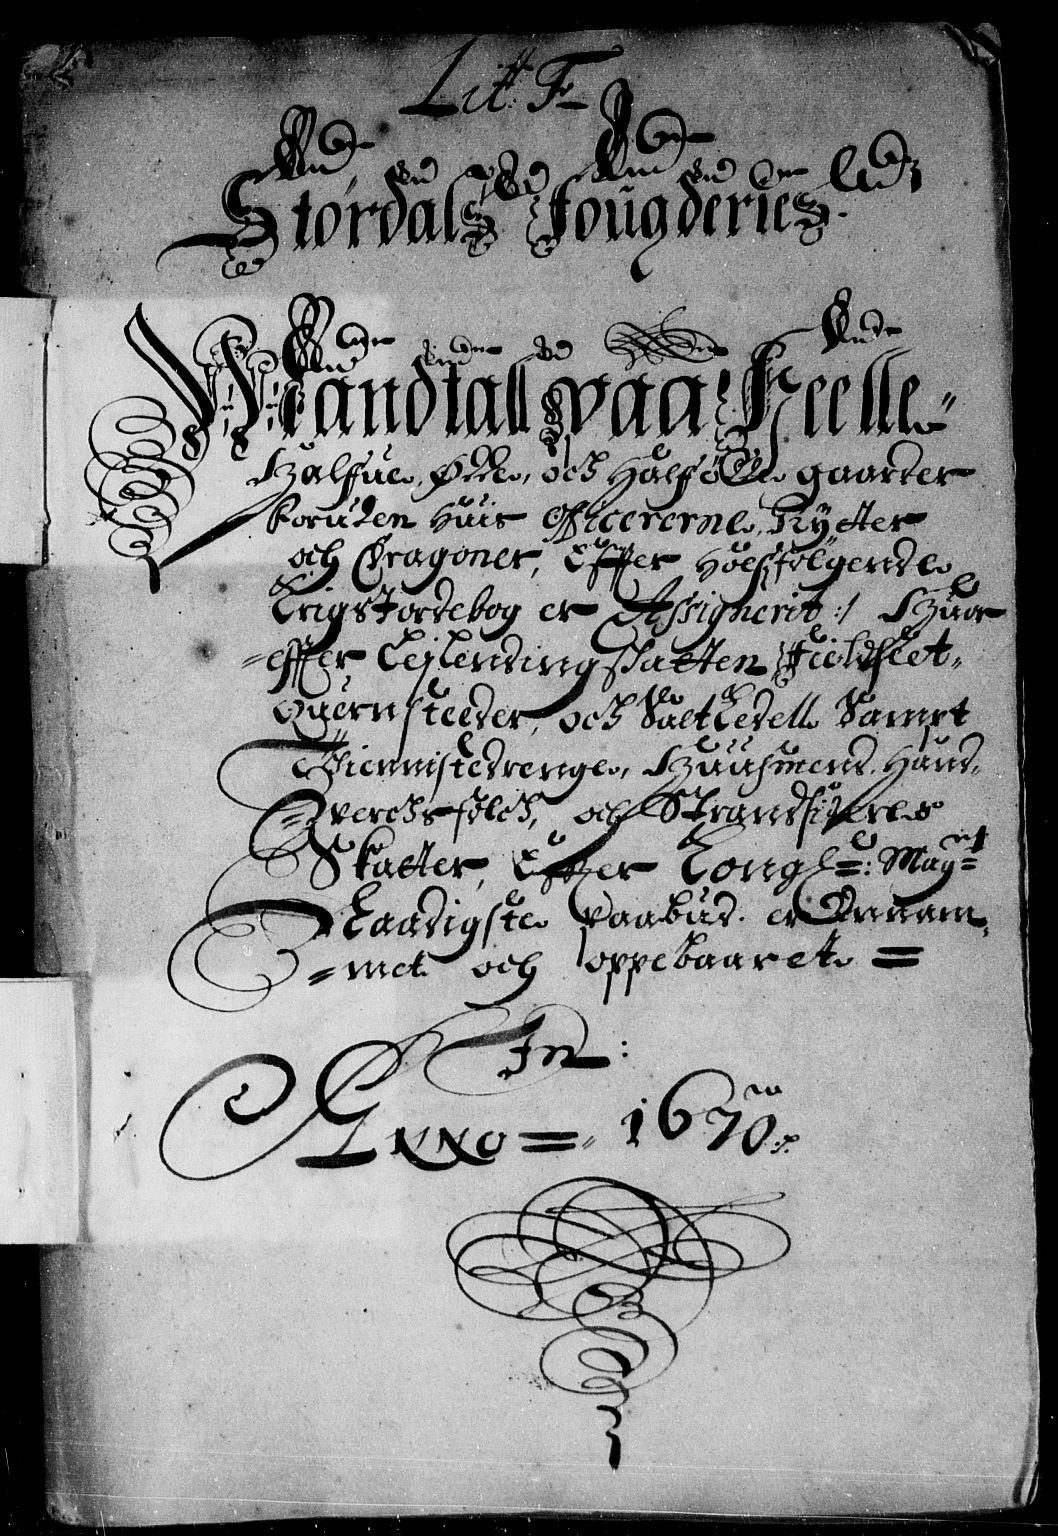 Litt: F
Størdals Fougderies
Mandtall paa Heelle
Halfue, Øde, och Halføde gaarder
foruden huis Officererne, Rytter
och Dragoner, Effter Hoesfølgende
Krigs Jordebog er Assignerit :/ Huor
effter Leilendingskatten Fieldseet
Quernsteeder, och Saltkedelle Sampt
Thiennistedrenge, Huusmend, Hand-
verchsfolch, och Strandsiderres
Skatter, Effter Kongl: May:tt
Naadigste paabud er Annam-
met och oppebaaret
In:
Anno 1670